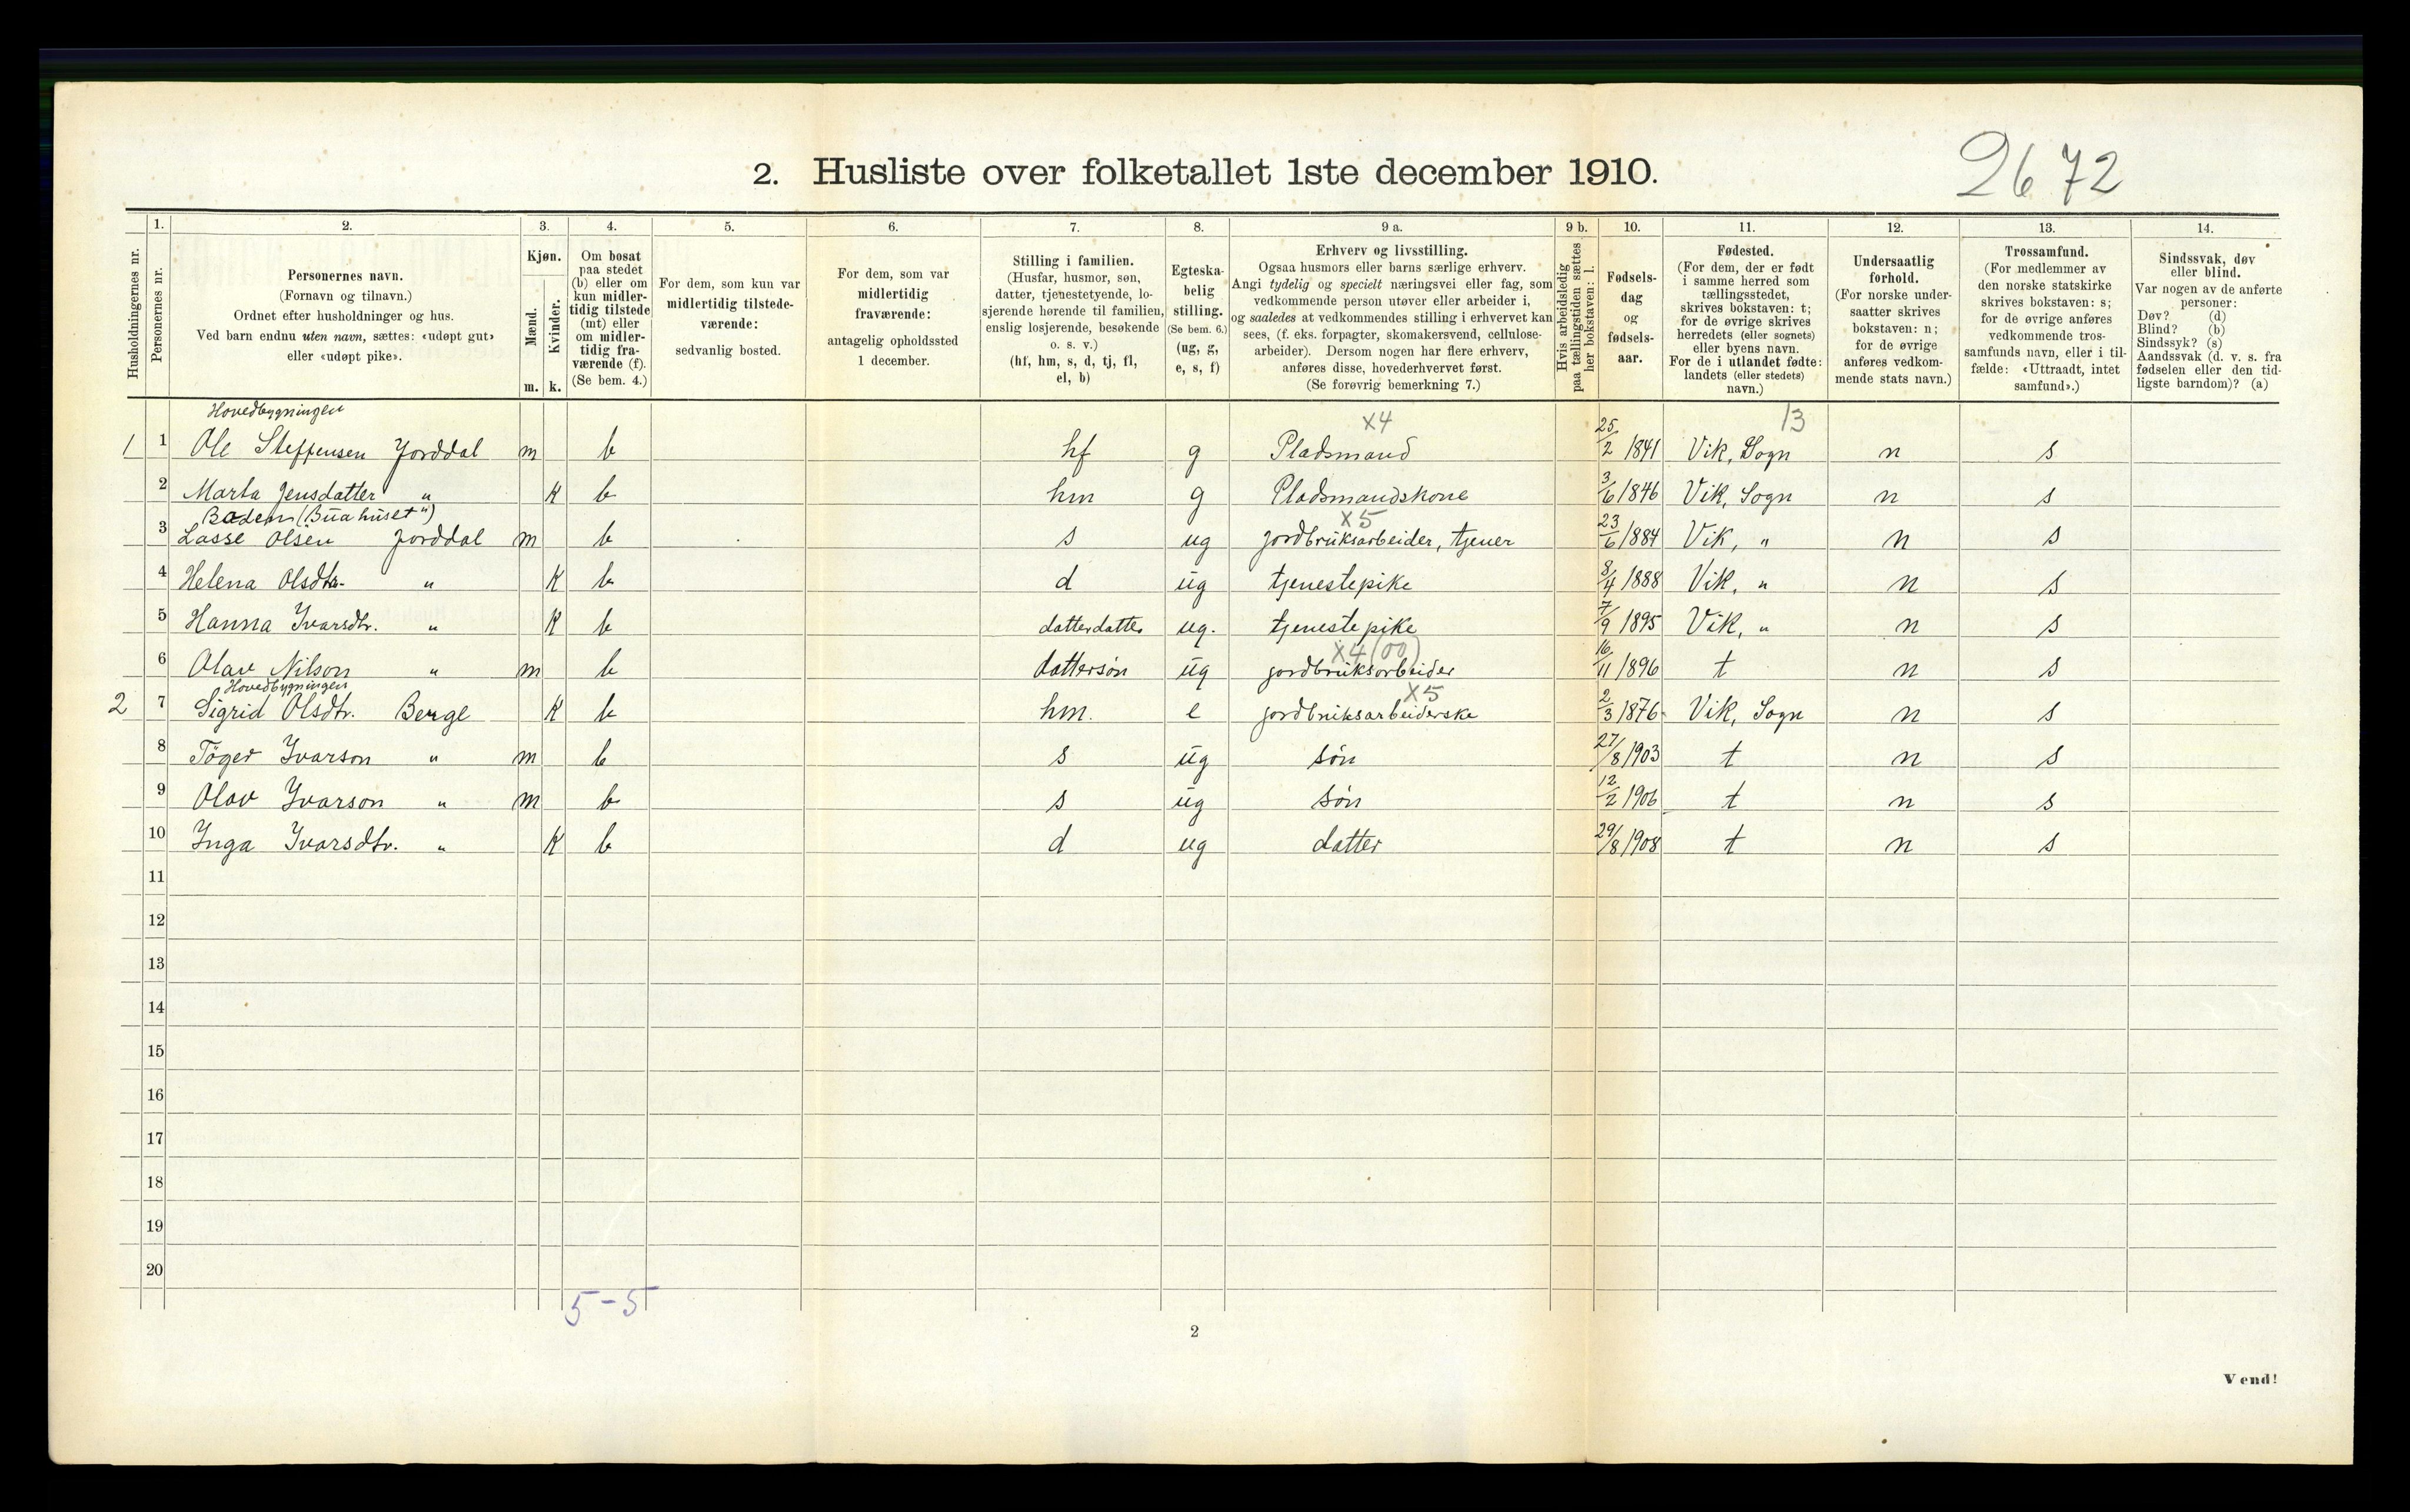 2. Husliste over folketallet 1ste december 1910.
2672
Husholdningernes nr.
1.
Personernes nr.
2.
Personernes navn.
(Fornavn og tilnavn.)
Ordnet efter husholdninger og hus.
Ved barn endnu uten navn, sættes: «udøpt gut»
eller «udøpt pike».
3.
Kjøn.
Mænd.
Kvinder.
m. k.
4.
Om bosat
paa stedet
(b) eller om
kun midler-
tidig tilstede
(mt) eller
om midler-
tidig fra-
værende (f).
(Se bem. 4.)
5.
For dem, som kun var
midlertidig tilstede-
værende:
sedvanlig bosted.
6.
For dem, som var
midlertidig
fraværende:
antagelig opholdssted
1 december.
7.
Stilling i familien.
(Husfar, husmor, søn,
datter, tjenestetyende, lo-
sjerende hørende til familien,
enslig losjerende, besøkende
o. s. v.)
(hf, hm, s, d, tj, fl,
el, b)
8.
Egteska-
belig
stilling.
(Se bem. 6.)
(ug, g,
e, s, f)
9 a.
Erhverv og livsstilling.
Ogsaa husmors eller barns særlige erhverv.
Angi tydelig og specielt næringsvei eller fag, som
vedkommende person utøver eller arbeider i,
og saaledes at vedkommendes stilling i erhvervet kan
sees, (f. eks. forpagter, skomakersvend, cellulose-
arbeider). Dersom nogen har flere erhverv,
anføres disse, hovederhvervet først.
(Se forøvrig bemerkning 7.)
9 b.
Hvis arbeidsledig
paa tællingstiden sættes
her bokstaven: l.
10.
Fødsels-
dag
og
fødsels-
aar.
11.
Fødested.
(For dem, der er født
i samme herred som
tællingsstedet,
skrives bokstaven: t;
for de øvrige skrives
herredets (eller sognets)
eller byens navn.
For de i utlandet fødte:
landets (eller stedets)
navn.)
12.
Undersaatlig
forhold.
(For norske under-
saatter skrives
bokstaven: n;
for de øvrige
anføres vedkom-
mende stats navn.)
13.
Trossamfund.
(For medlemmer av
den norske statskirke
skrives bokstaven: s;
for de øvrige anføres
vedkommende tros-
samfunds navn, eller i til-
fælde: «Uttraadt, intet
samfund».)
14.
Sindssvak, døv
eller blind.
Var nogen av de anførte
personer:
Døv? (d)
Blind? (b)
Sindssyk? (s)
Aandssvak (d. v. s. fra
fødselen eller den tid-
ligste barndom)? (a)
Hovedbygningen x4 13
1 1 Ole Steffensen Jorddal m b hf g Pladsmand 25/2 1841 Vik, Sogn n s
2 Marta Jensdatter " k b hm g Pladsmandskone 3/6 1846 Vik, Sogn n s
Boden ("Buahuset") x5
3 Lasse Olsen Jorddal m b s ug jordbruksarbeider, tjener 23/6 1884 Vik, " n s
4 Helena Olsdtr. " k b d ug tjenestepike 8/4 1888 Vik, " n s
5 Hanna Ivarsdtr. " k b datterdatter ug. tjenestepike 7/9 1895 Vik, " n s
x4 (00)
6 Olav Nilson " m b dattersøn ug jordbruksarbeider 16/11 1896 t n s
Hovedbygningen x5
2 7 Sigrid Olsdtr. Berge k b hm. e jordbruksarbeiderske 2/3 1876 Vik, Sogn n s
8 Töger Ivarson " m b s ug søn 27/8 1903 t n s
9 Olav Ivarson " m b s ug søn 12/2 1906 t n s
10 Inga Ivarsdtr. " k b d ug datter 29/8 1908 t n s
11
12
13
14
15
16
17
18
19
20
5-5
2
Vend!